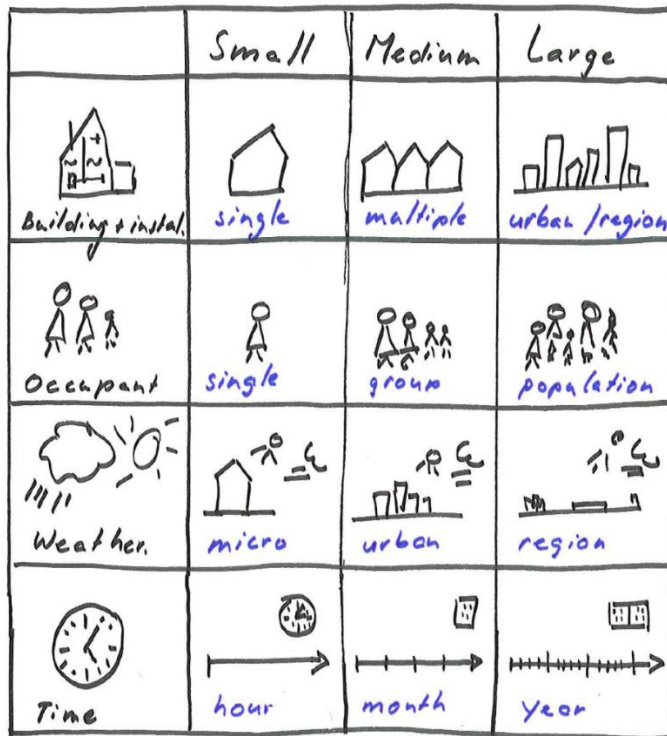 Small Medium Large
Building + instal. single multiple urban/region
Occupant single group population
Weather. micro urban region
Time hour month year